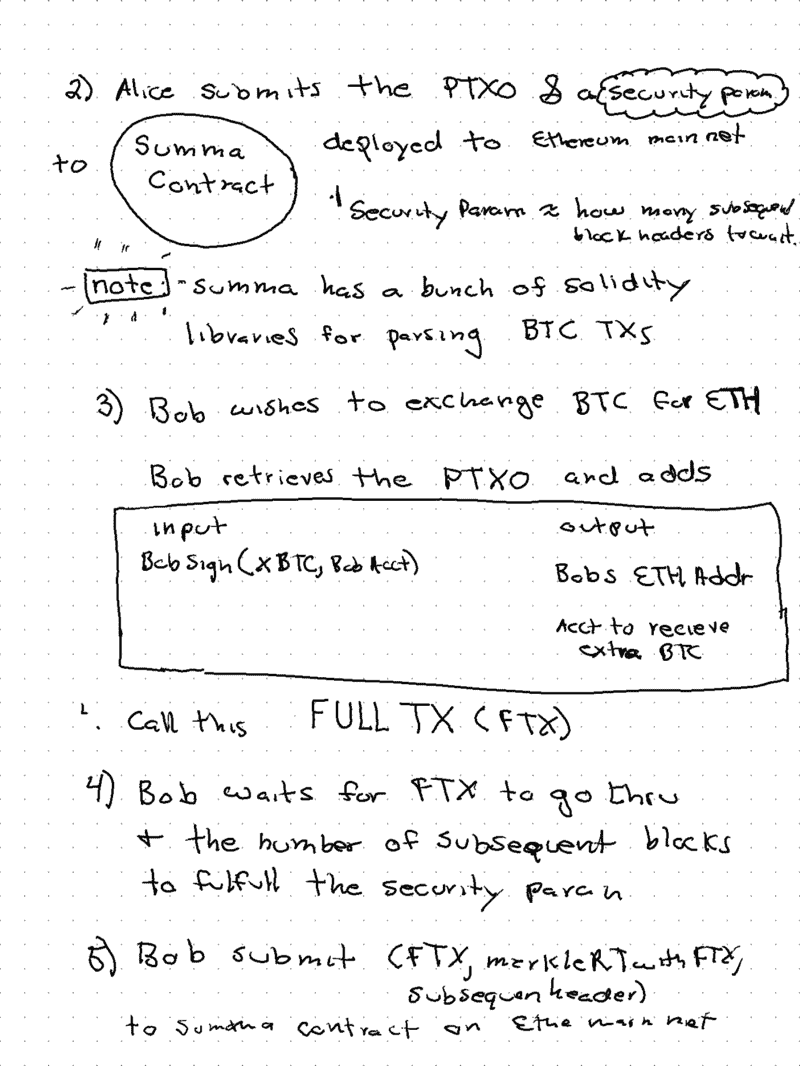 2) Alice submits the PTXO & a (security param)
to Summa Contract deployed to Ethereum main net
Security Param ≈ how many subsequent
block headers to wait.
note: - summa has a bunch of solidity
libraries for parsing BTC TXs
3) Bob wishes to exchange BTC for ETH
Bob retrieves the PTXO and adds
input output
Bob Sign (X BTC, Bob Acct)
Bobs ETH Addr
Acct to recieve
extra BTC
Call this FULL TX (FTX)
4) Bob waits for FTX to go thru
+ the number of subsequent blocks
to fulfull the security param
5) Bob submit (FTX, merkle RT with FTX,
subsequen header)
to summa contract on Ethe main net